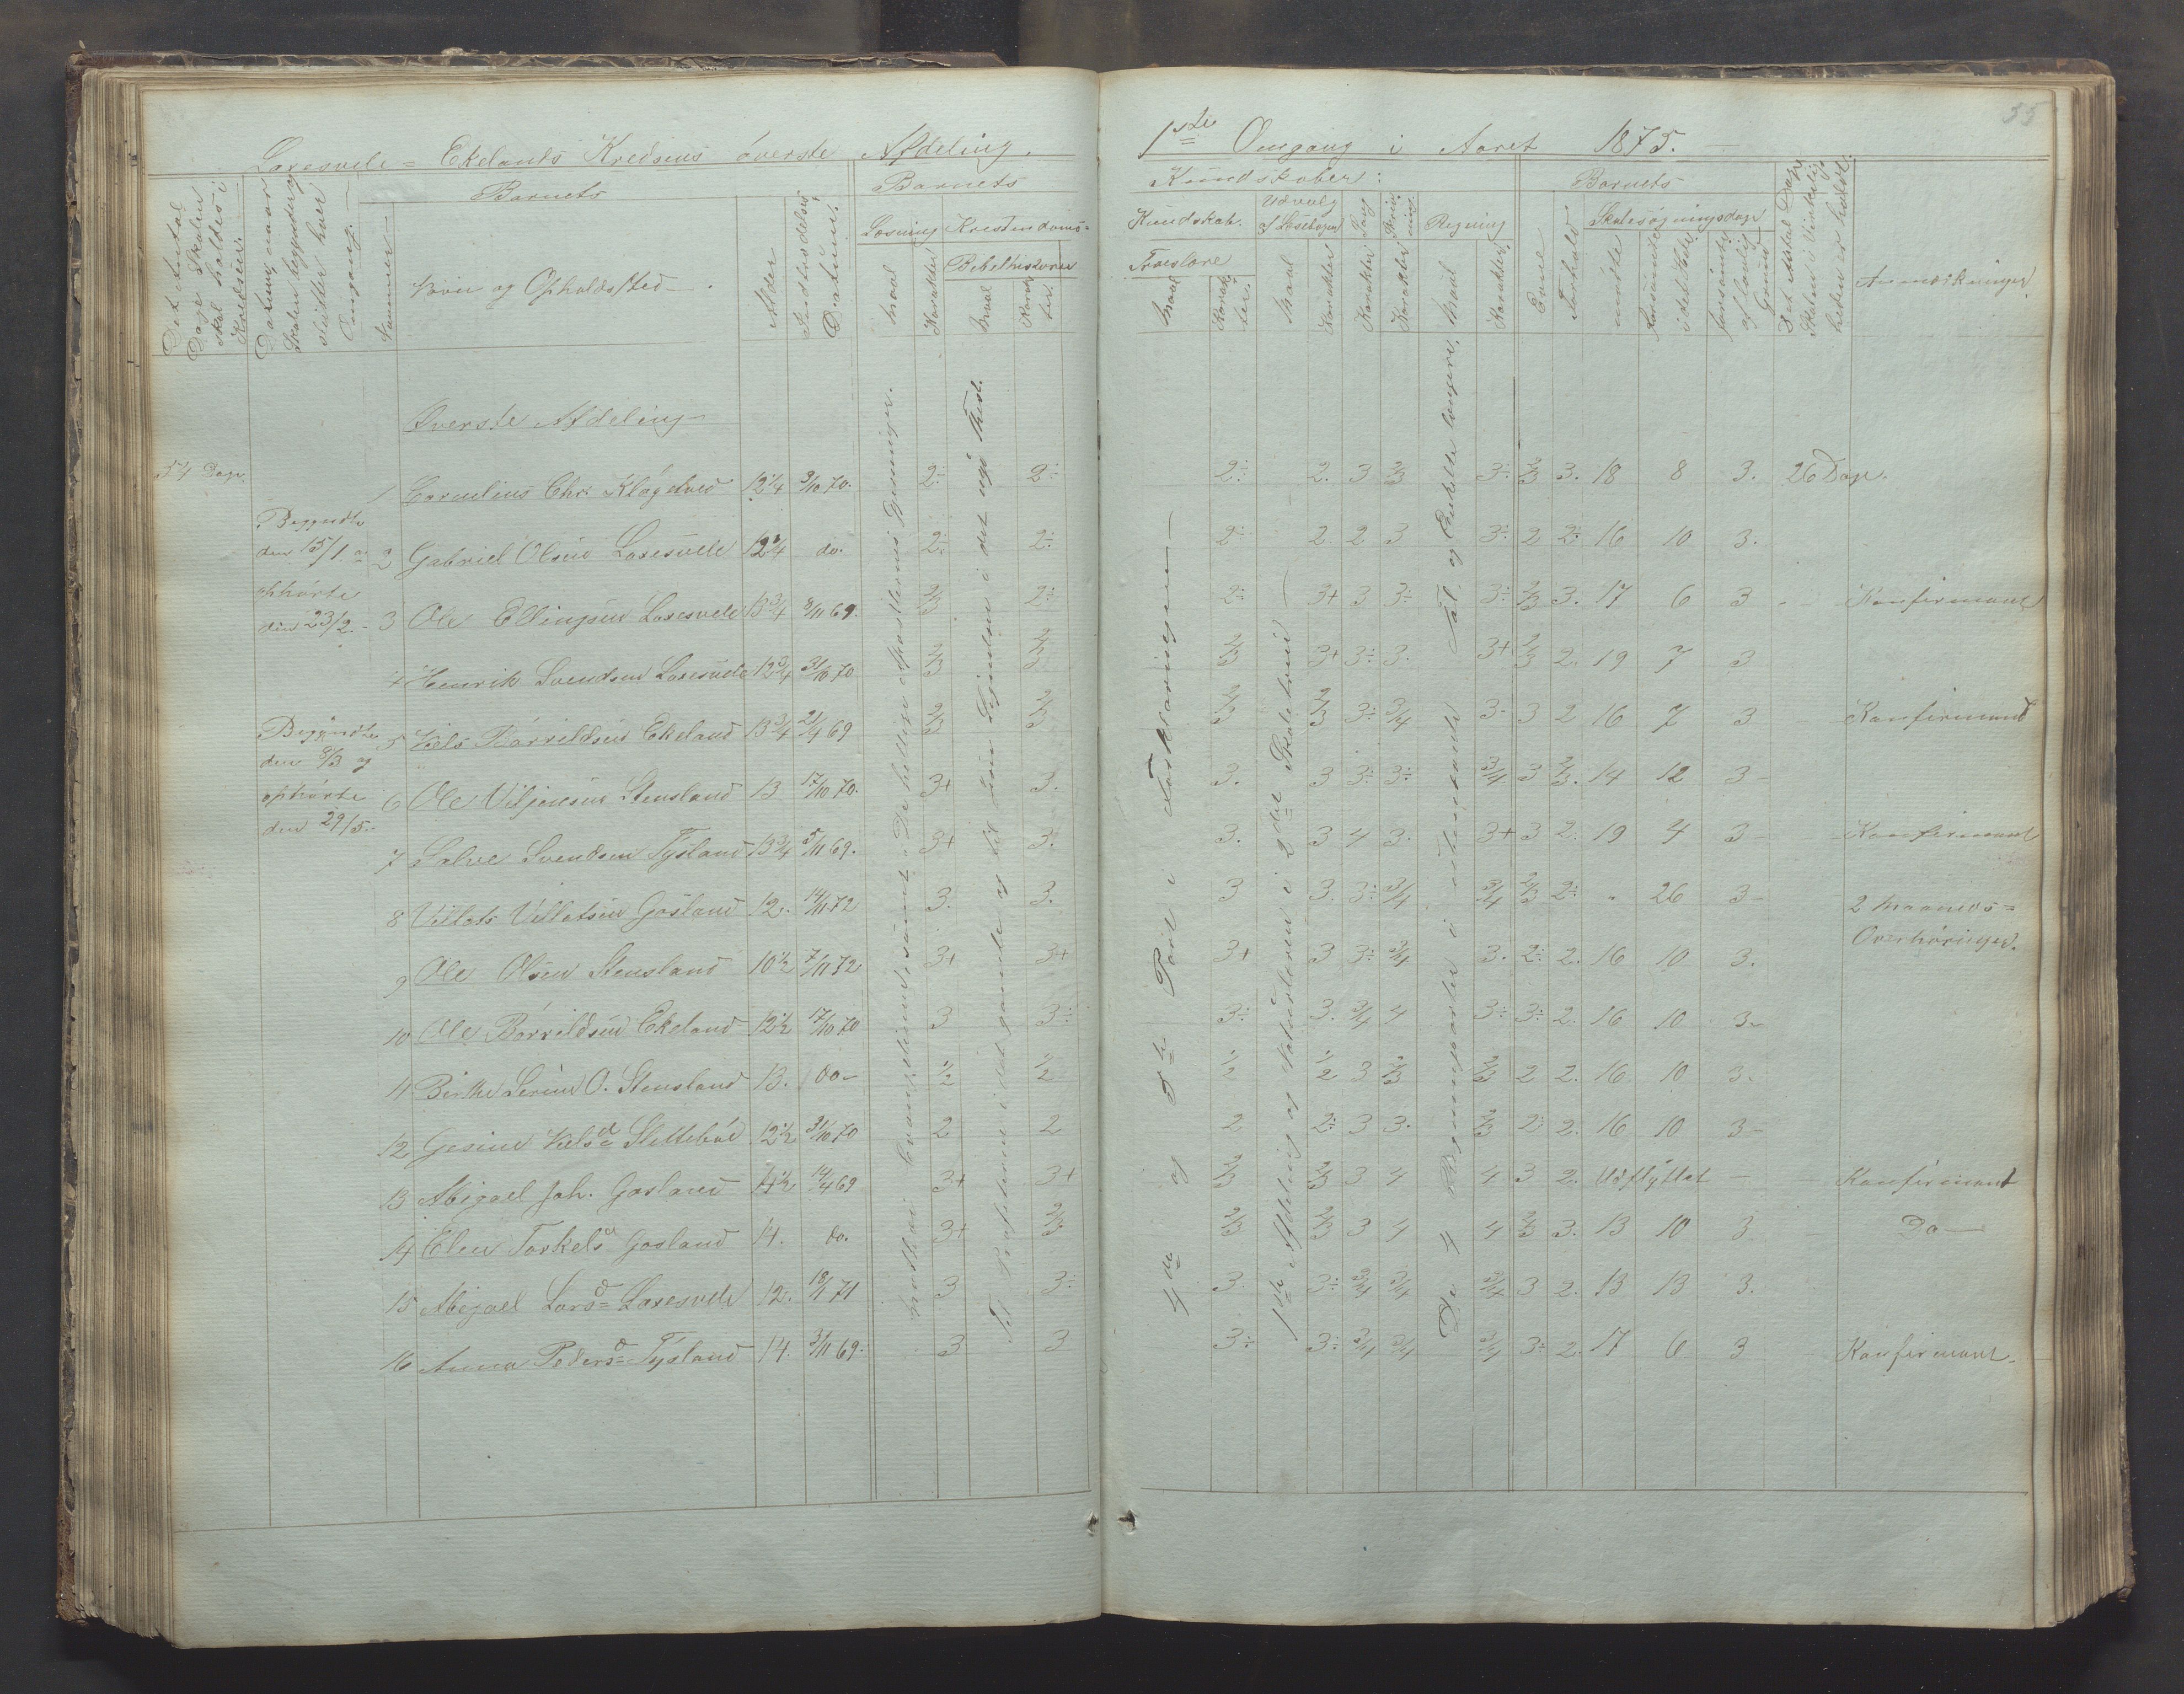 55
Laxesvele = Ekelands Kredsens överste Afdeling.
1ste Omgang i Aaret 1875.
Det Antal Dage Skolen skal holdes i Kredsen.
Datum, naar Skolen begynder og slutter hver Omgang.
Nummer
Barnets
Navn og Opholdssted
Alder
Indtrædelses Datum.
Barnets
Læsning
Maal
Karakter
Kristendoms=
Bibelhistorie
Maal
Karakter.
Kundskaber:
Kundskab.
Troeslære
Maal
Karakter.
Udvalg af Læsebogen
Maal
Karakter
Sang
Karakter
Skrivning
Karakter
Regning
Maal
Karakter
Barnets
Evne
Forhold
Skolesøgningsdage
mödte
forsömte i det Hele
forsömte af lovlig Grund
Det Antal Dage Skolen i Virkeligheden er holdt.
Anmærkninger
Överste Afdeling
54 Dage
Begyndte
den 15/1 og
ophörte
den 23/2.
Begyndte
den 8/3 og
ophörte
den 29/5.
1 Cornelius Chr. Klögetved 12 1/4 3/10 70. 2÷ 2÷ 2÷ 2. 3 2/3 3÷ 2/3 3. 18 8 3. 26 Dage.
2 Gabriel Olsen Laxesvele 12 1/4 do. 2÷ 2÷ 2÷ 2. 2 3 3÷ 2 2÷ 16 10 3.
3 Ole Ellingsen Laxesvele 13 3/4 8/11 69. 2/3 2÷ 2÷ 3+ 3 3÷ 3÷ 2/3 3. 17 6 3 Konfirmant
4 Henrik Svendsen Laxesvele 12 3/4 31/10 70 2/3 2/3 2/3 3+ 3÷ 3. 3+ 2/3 2. 19 7 3
5 Niels Börrildsen Ekeland 13 3/4 21/4 69 2/3 2/3 2/3 2/3 3÷ 3/4 3- 3 2 16 7 3 Konfirmant
6 Ole Viljensen Stensland 13 17/10 70. 3+ 3. 3. 3 3÷ 3÷ 3/4 3 2/3. 14 12 3
7 Salve Svendsen Tysland 13 3/4 5/11 69. 3+ 3. 3. 3 4 3. 3+ 3 2. 19 4 3 Konfirmant
8 Villats Villatsen Gosland 12. 14/11 72 3. 3. 3 3. 3÷ 3/4 3/4 2/3 2÷ " 26 3 2 Maaneds= Overhöringer.
9 Ole Olsen Stensland 10 1/2 7/11 72 3+ 3+ 3+ 3 3÷ 3/4 3. 2÷ 2. 16 10 3.
10 Ole Börrildsen Ekeland 12 1/2 17/10 70 3 3÷ 3÷ 3. 3/4 4 3÷ 3÷ 2. 16 10 3.
11 Birthe Serine O. Stensland 13. do 1/2 1/2 1/2 1/2 3 2/3 2/3 2 2. 16 10 3.
12 Gesine Nielsd. Sletteböe 12 1/2 31/10 70 2 2 2 2÷ 3 3. 2/3 2 2. 16 10 3
13 Abigael Joh. Gosland 14 1/2 14/4 69 3+ 3+ 2/3 2/3 3 4 4 3 2. Udflyttet Konfirmant
14 Elen Torkelsd. Gosland 14. do. 3+ 2/3 2/3 2/3 3 4 4 2/3 3. 13 10 3 Do
15 Abigael Larsd. Laxesvele 12. 18/1 71 3 3÷ 3. 3÷ 3/4 3/4 3/4 3 2. 13 13 3.
16 Anna Pedersd. Tysland 14. 3/11 69. 3 3 3÷ 3÷ 3/4 3/4 3/4 3÷ 2. 17 6 3 Konfirmant.
Matthæi Evangelium, samt De hellige Apostlernes Gjerninger.
Til Profeterne i det gamle og til Jesu Lignelser i det nye Test.
4de og 5te Part i Forklaringen
1ste Afdeling og Naturlæren i 2det Skoletrin
De 4 Regningsarter i ubenævnte Tal og Enkelte længere.